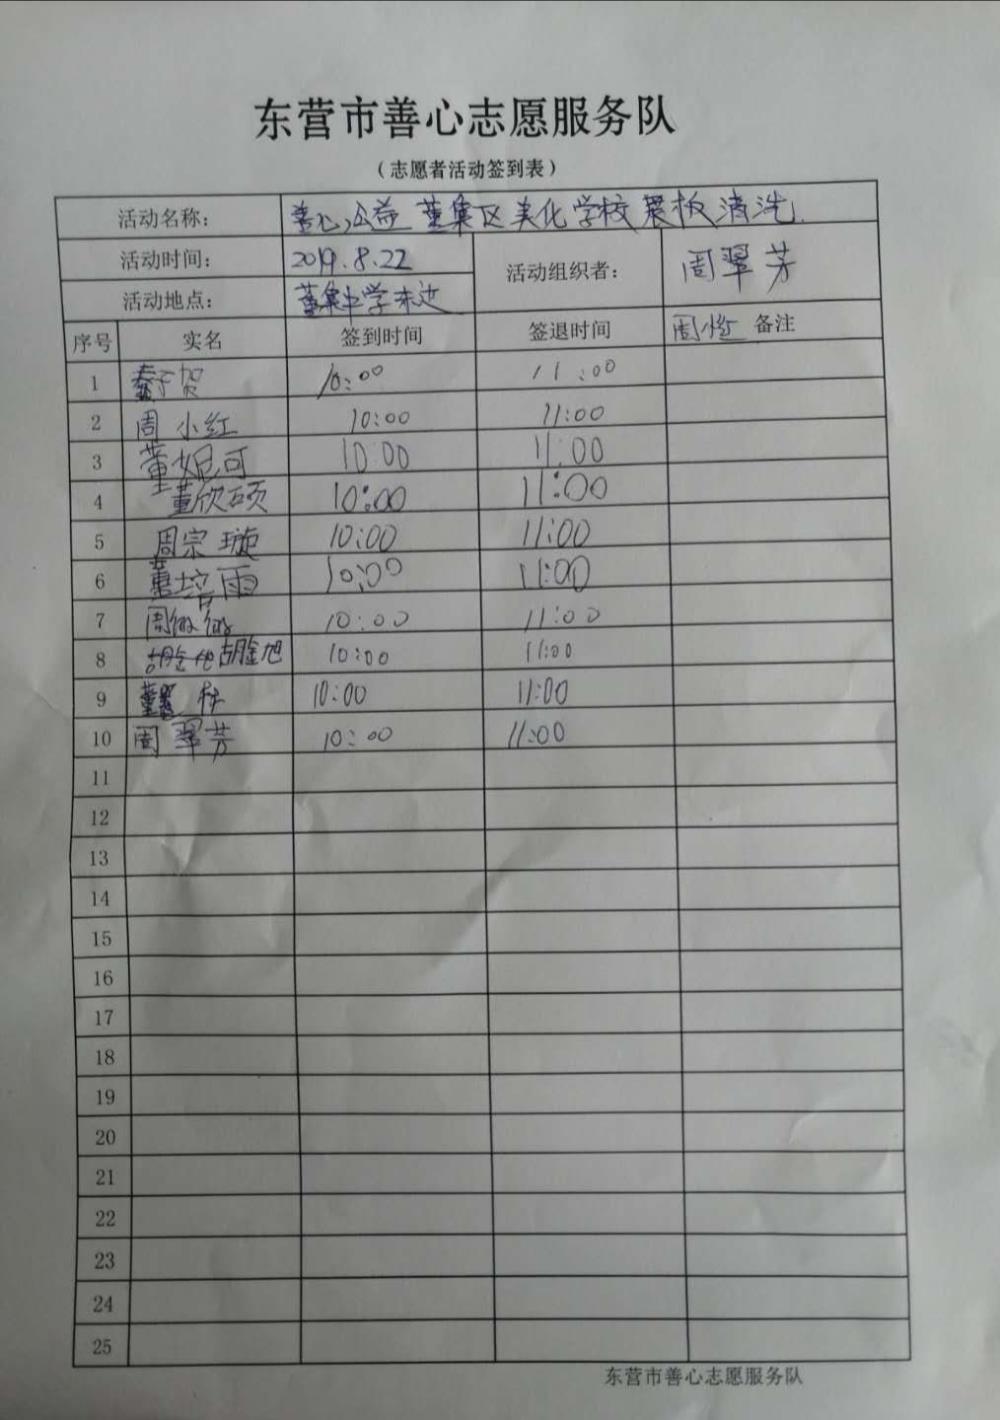 东营市善心志愿服务队
（志愿者活动签到表）
活动名称： 善心公益 董集区美化学校展板清洗
活动时间： 2019.8.22 活动组织者： 周翠芳
活动地点： 董集中学
序号 实名 签到时间 签退时间 备注
1 10:00 11:00
2 周小红 10:00 11:00
3 董妮可 10:00 11:00
4 董欣硕 10:00 11:00
5 周宗璇 10:00 11:00
6 董培雨 10:00 11:00
7 周微微 10:00 11:00
8 胡金旭 10:00 11:00
9 10:00 11:00
10 周翠芳 10:00 11:00
11
12
13
14
15
16
17
18
19
20
21
22
23
24
25
东营市善心志愿服务队